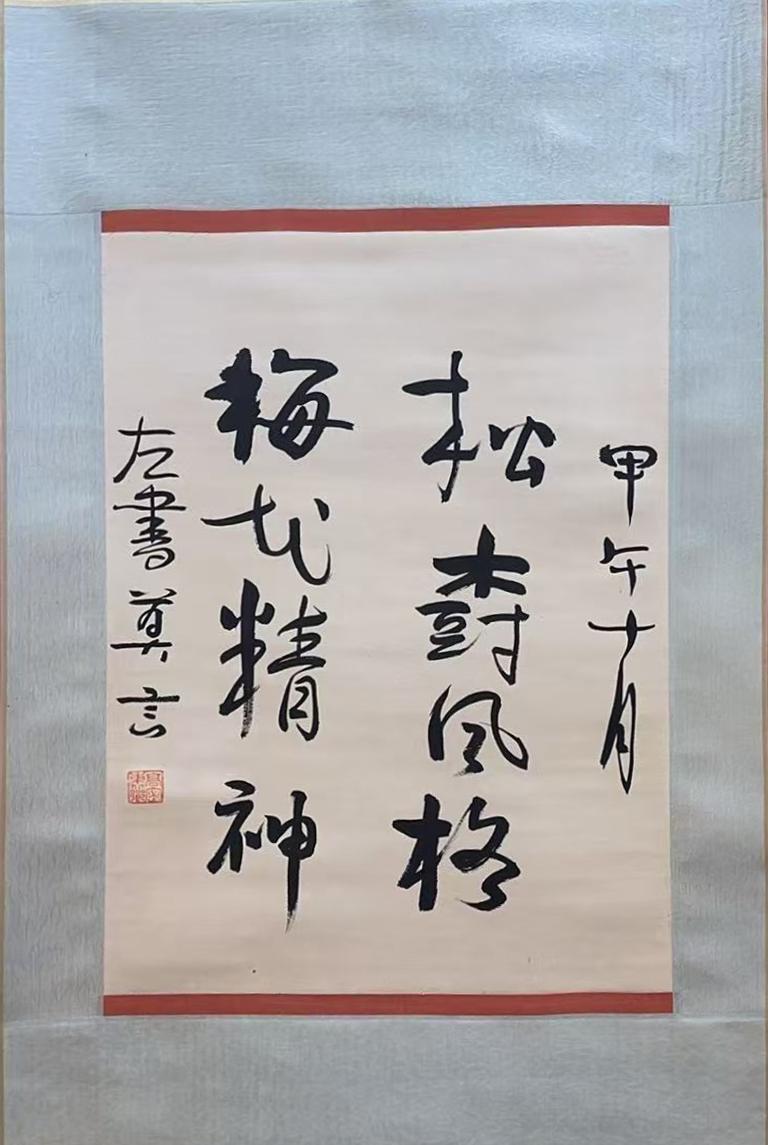 甲午十月
松樹風格
梅花精神
左書莫言